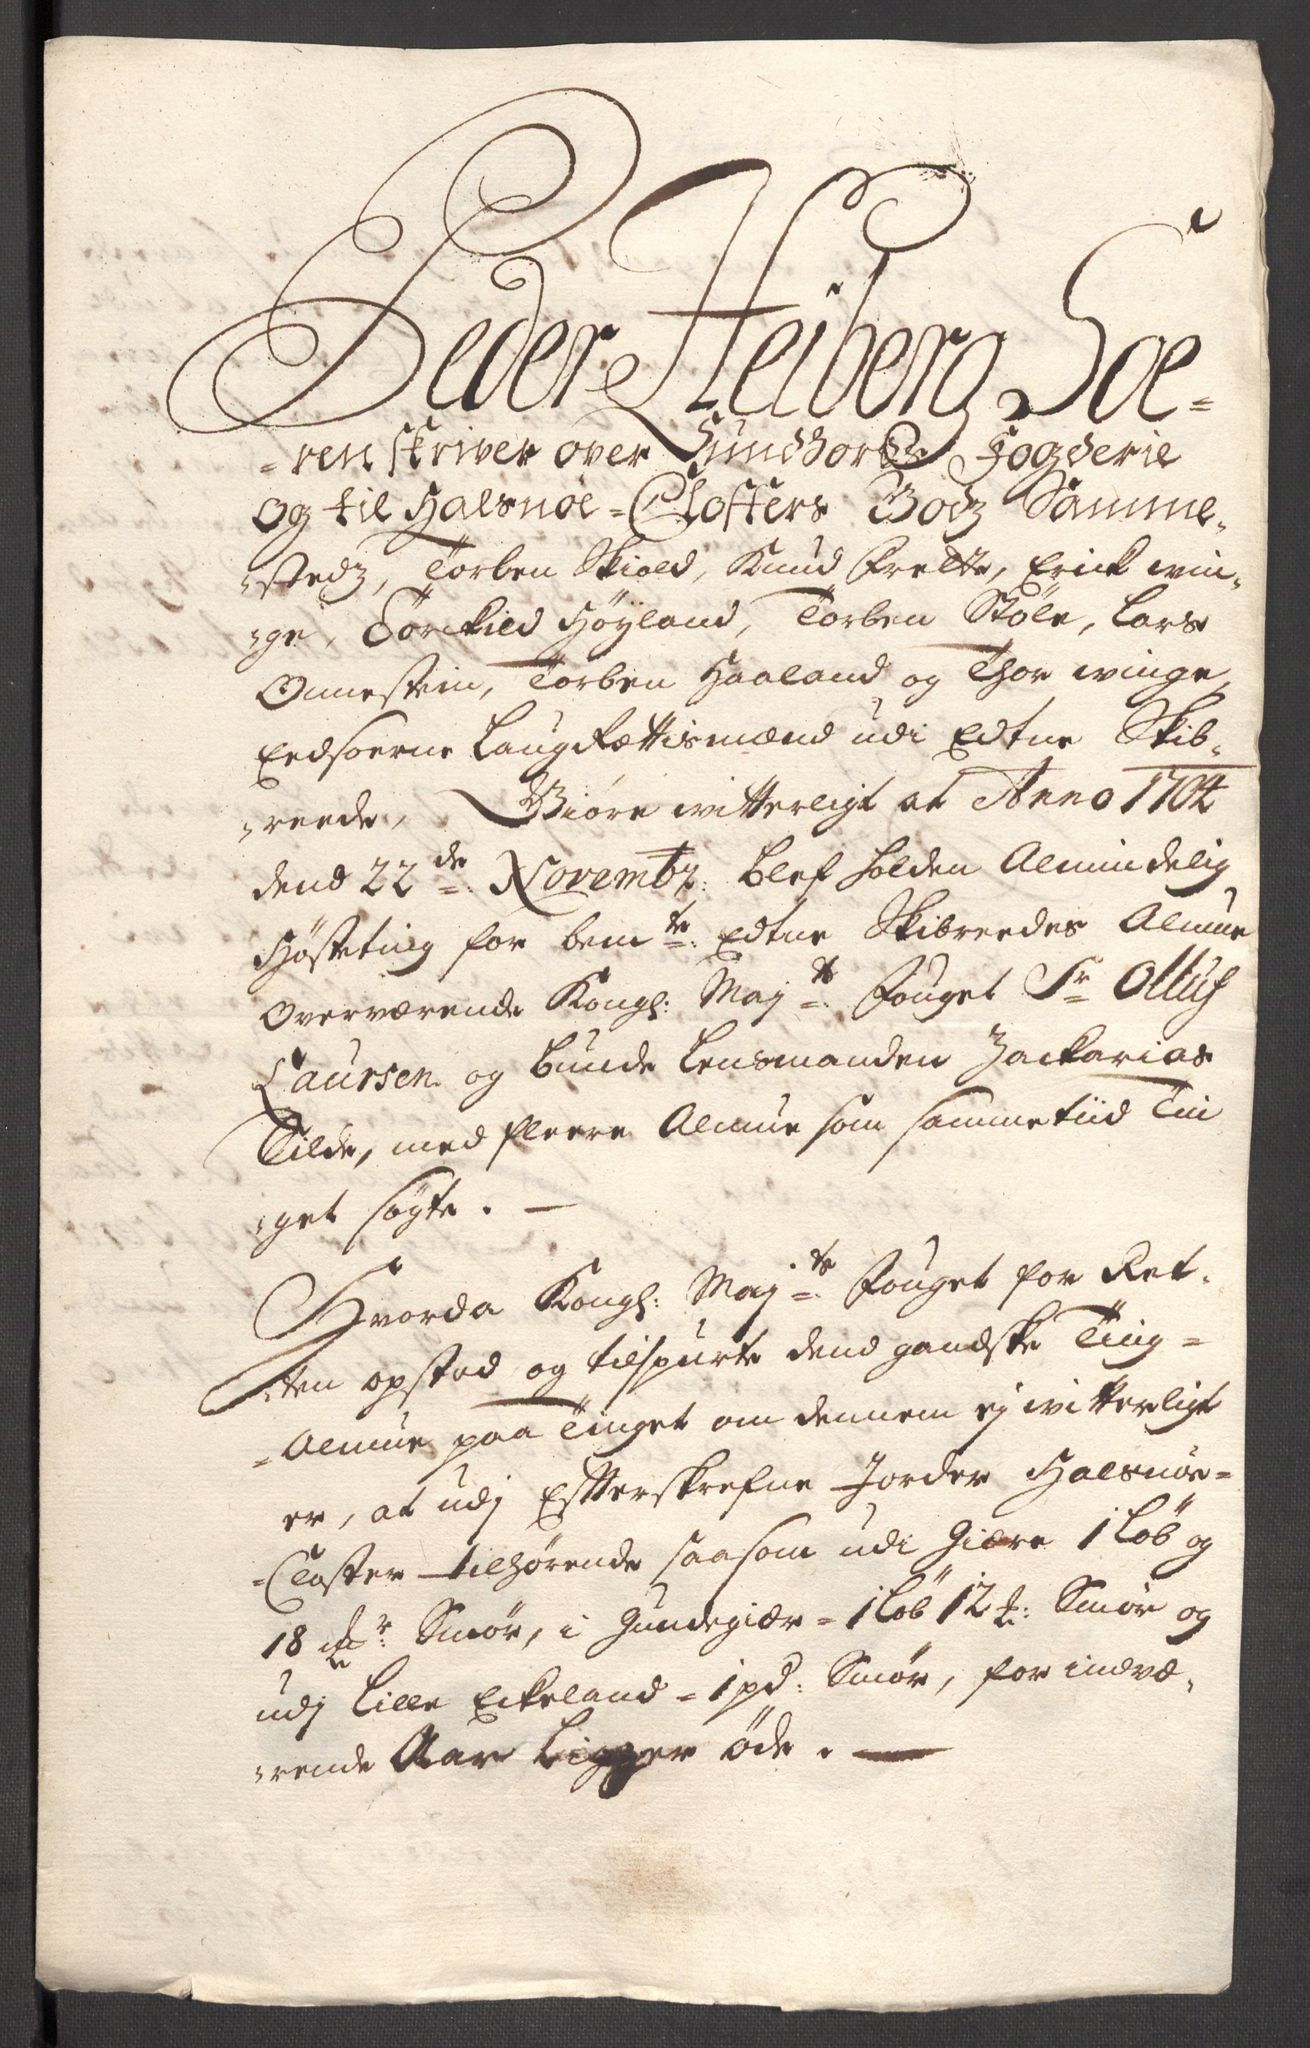 Peder Heiberg Soe-
-renskriver over Sundhorlz Fogderie
og til Halsnøe-Closters Godz Samme-
-stedz, Torben Skiold, Knud Frette, Erick win-
-ge, Torkild Høyland, Torben Støle, Lars
Onnestein, Torben Haaland og Thor winge,
Eedsoerne Laugrættismænd udi Edtne Skib-
-reede, Giøre witterligt at Anno 1704
dend 22de Novembr: blef holden Almindelig
Høsteting for bemte: Edtne Skibreedes Almue
Overværende Kongl: Mayts: Fouget Sr Olluf
Laursen og bunde Lensmanden Zackarias
Tilde, med fleere Almue som sammetiid Tin
-get søgte. —
Hvorda Kongl: Mayts: Fouget for Ret-
-ten opstod og tilspurte dend gandske Ting-
-Almue paa Tinget om dennem ej witterligt
er, at udj Effterskrefne Jorder Halsnøe-
-Closter tilhørende saasom udi Giære 1 Løb og
18 mr: Smør, i Gundegiær - 1 Løb 12 : Smør og
udj Lille Eckeland - 1 pd: Smør, for indvæ-
-rende Aar Ligger øde. —